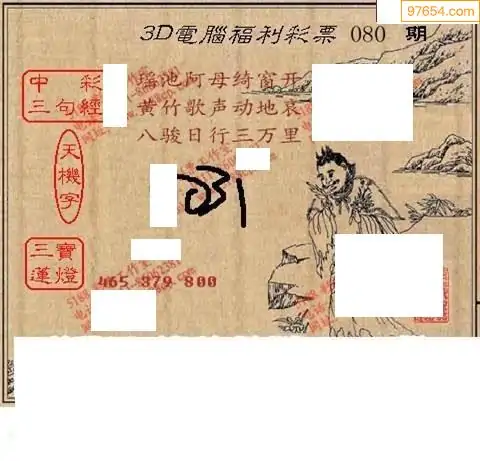 97654.com
3D電腦福利彩票 080 期
中彩
三句經
瑶池阿母绮窗开
黄竹歌声动地哀
八骏日行三万里
天機字
三寶
蓮燈
465 379 800